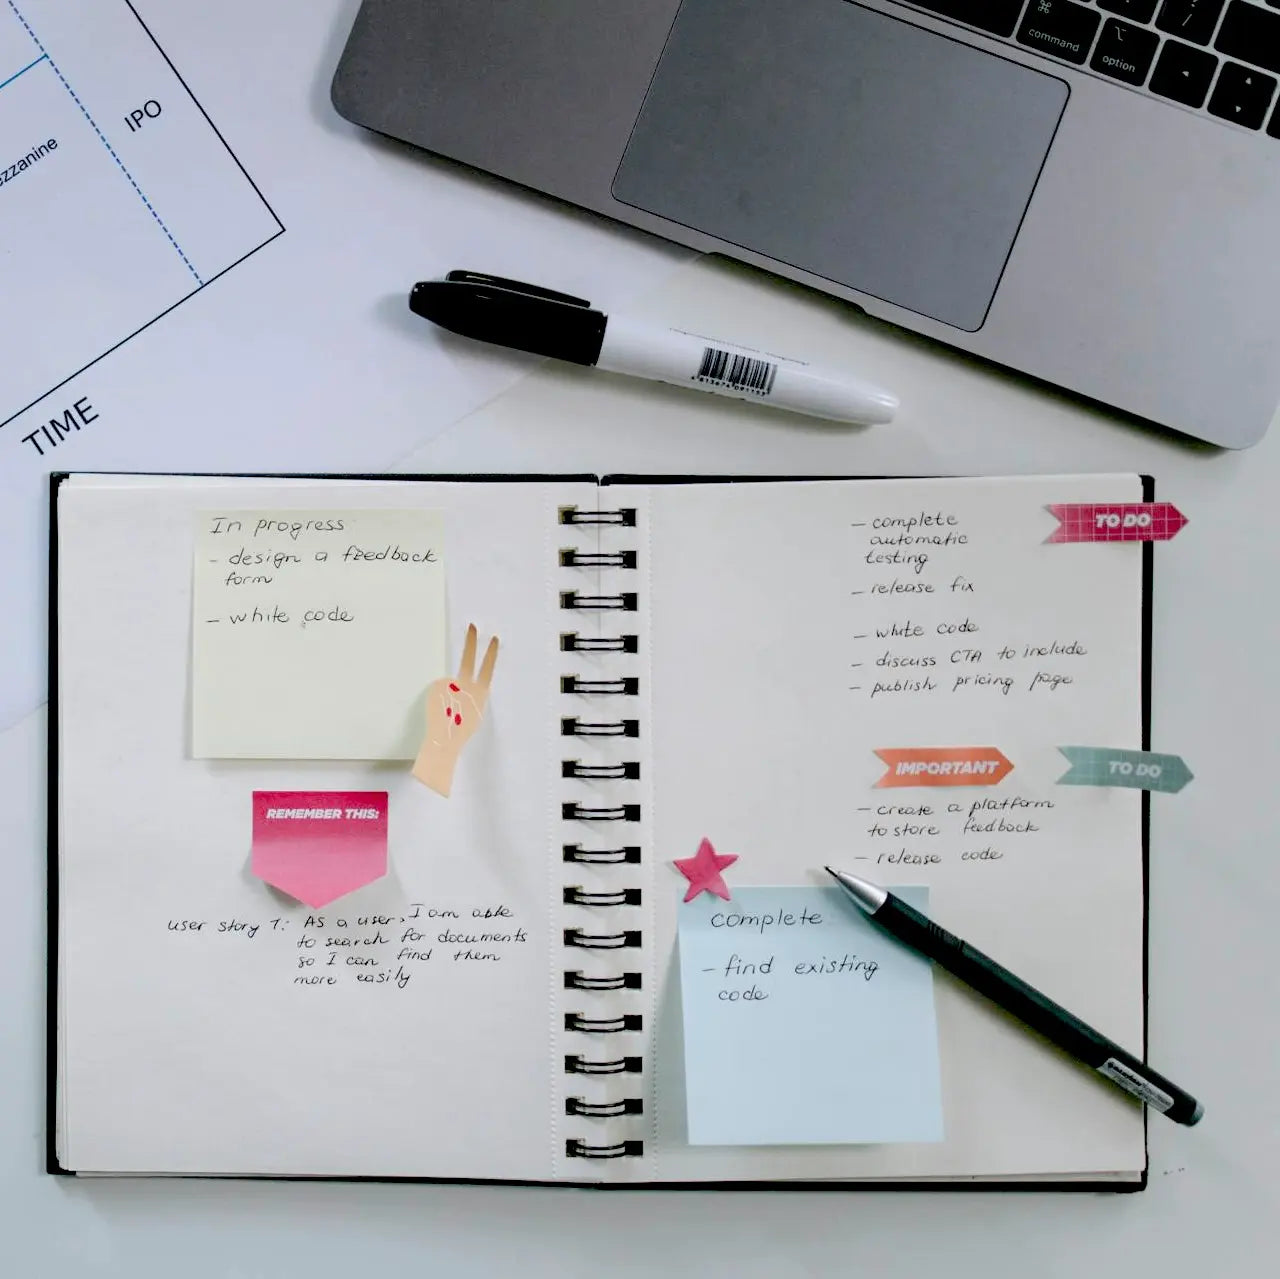 IPO
TIME
command
option
4813674091153
In progress
- design a feedback
form
- white code
REMEMBER THIS:
user story 1: As a user, I am able
to search for documents
so I can find them
more easily
TO DO
- complete
automatic
testing
- release fix
- white code
- discuss CTA to include
- publish pricing page
IMPORTANT
TO DO
- create a platform
to store feedback
- release code
complete
- find existing
code